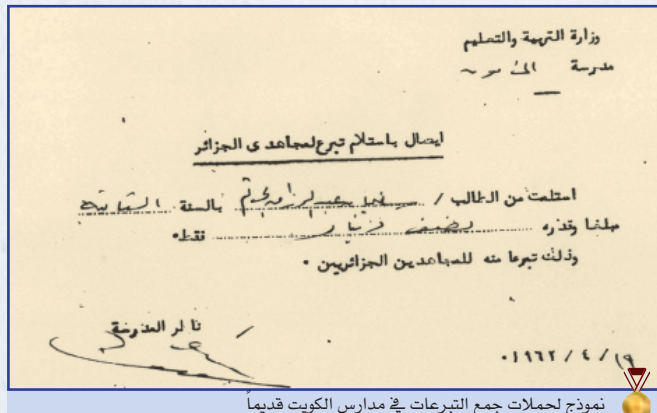 وزارة التربية والتعليم
مدرسة المأمون
ايصال باستلام تبرع لمجاهدى الجزائر
استلمت من الطالب / عبد الرزاق بالسنة الثانية
مبلغا وقدره نصف دينار فقط.
وذلك تبرعا منه للمجاهدين الجزائريين .
ناظر المدرسة
١٩ / ٤ / ١٩٦٢.
نموذج لحملات جمع التبرعات في مدارس الكويت قديماً